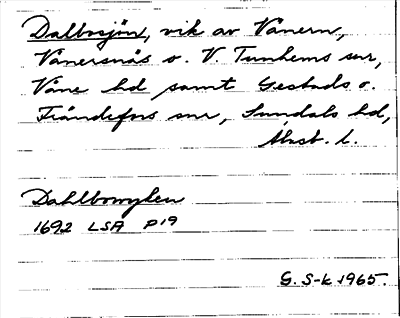 Dalbosjön, vik av Vänern,
Vänersnäs o. V. Tunhems snr,
Väne hd samt Gestads o.
Frändefors snr, Sundals hd,
Älvsb. l.
Dahlbowyken
1692 LSA P19
G. S-k 1965.